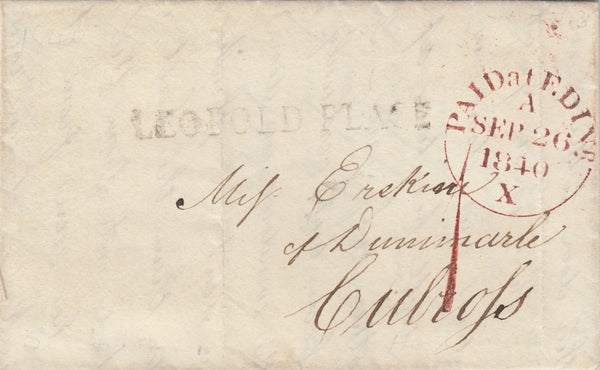 PAID at EDINR
A
SEP 26
1840
X
LEOPOLD PLACE
1
Miſs Erskine
of Dunimarle
Culroſs